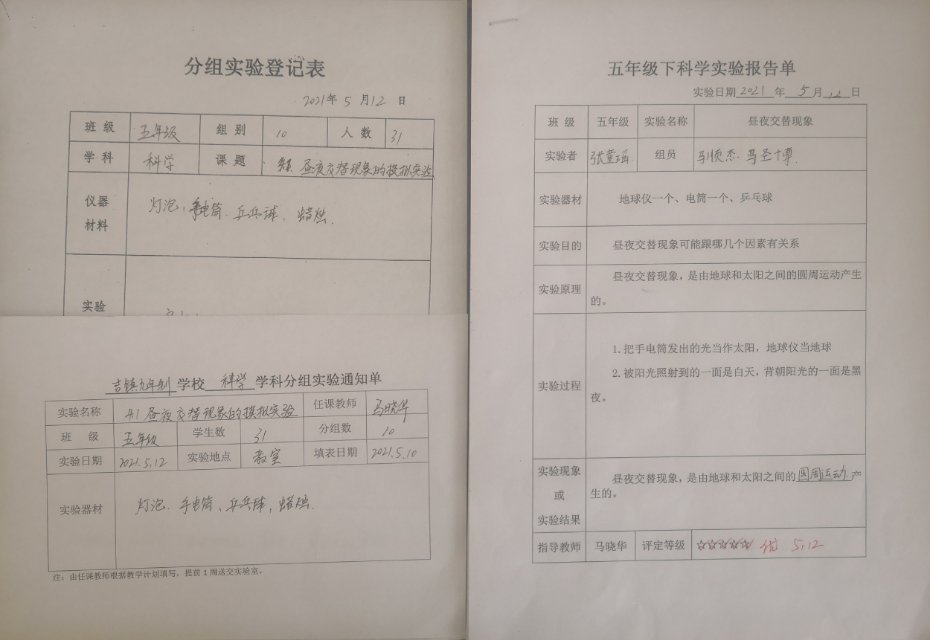 分组实验登记表
2021年 5 月 12 日
班 级 五年级 组 别 10 人 数 31
学 科 科学 课 题 昼夜交替现象的模拟实验
仪器
材料
灯泡、手电筒、乒乓球、蜡烛.
实验
吉镇九年制 学校 科学 学科分组实验通知单
实验名称 4.1 昼夜交替现象的模拟实验 任课教师 马晓华
班 级 五年级 学生数 31 分组数 10
实验日期 2021.5.12 实验地点 教室 填表日期 2021.5.10
实验器材 灯泡、手电筒、乒乓球,蜡烛.
注:由任课教师根据教学计划填写,提前1周送交实验室。
五年级下科学实验报告单
实验日期 2021 年 5 月 12 日
班 级 五年级 实验名称 昼夜交替现象
实验者 组员
实验器材 地球仪一个、电筒一个、乒乓球
实验目的 昼夜交替现象可能跟哪几个因素有关系
实验原理 昼夜交替现象,是由地球和太阳之间的圆周运动产生
的。
实验过程
1.把手电筒发出的光当作太阳,地球仪当地球
2.被阳光照射到的一面是白天,背朝阳光的一面是黑
夜。
实验现象
或
实验结果
昼夜交替现象,是由地球和太阳之间的圆周运动产
生的。
指导教师 马晓华 评定等级 ☆☆☆☆☆ 优 5.12